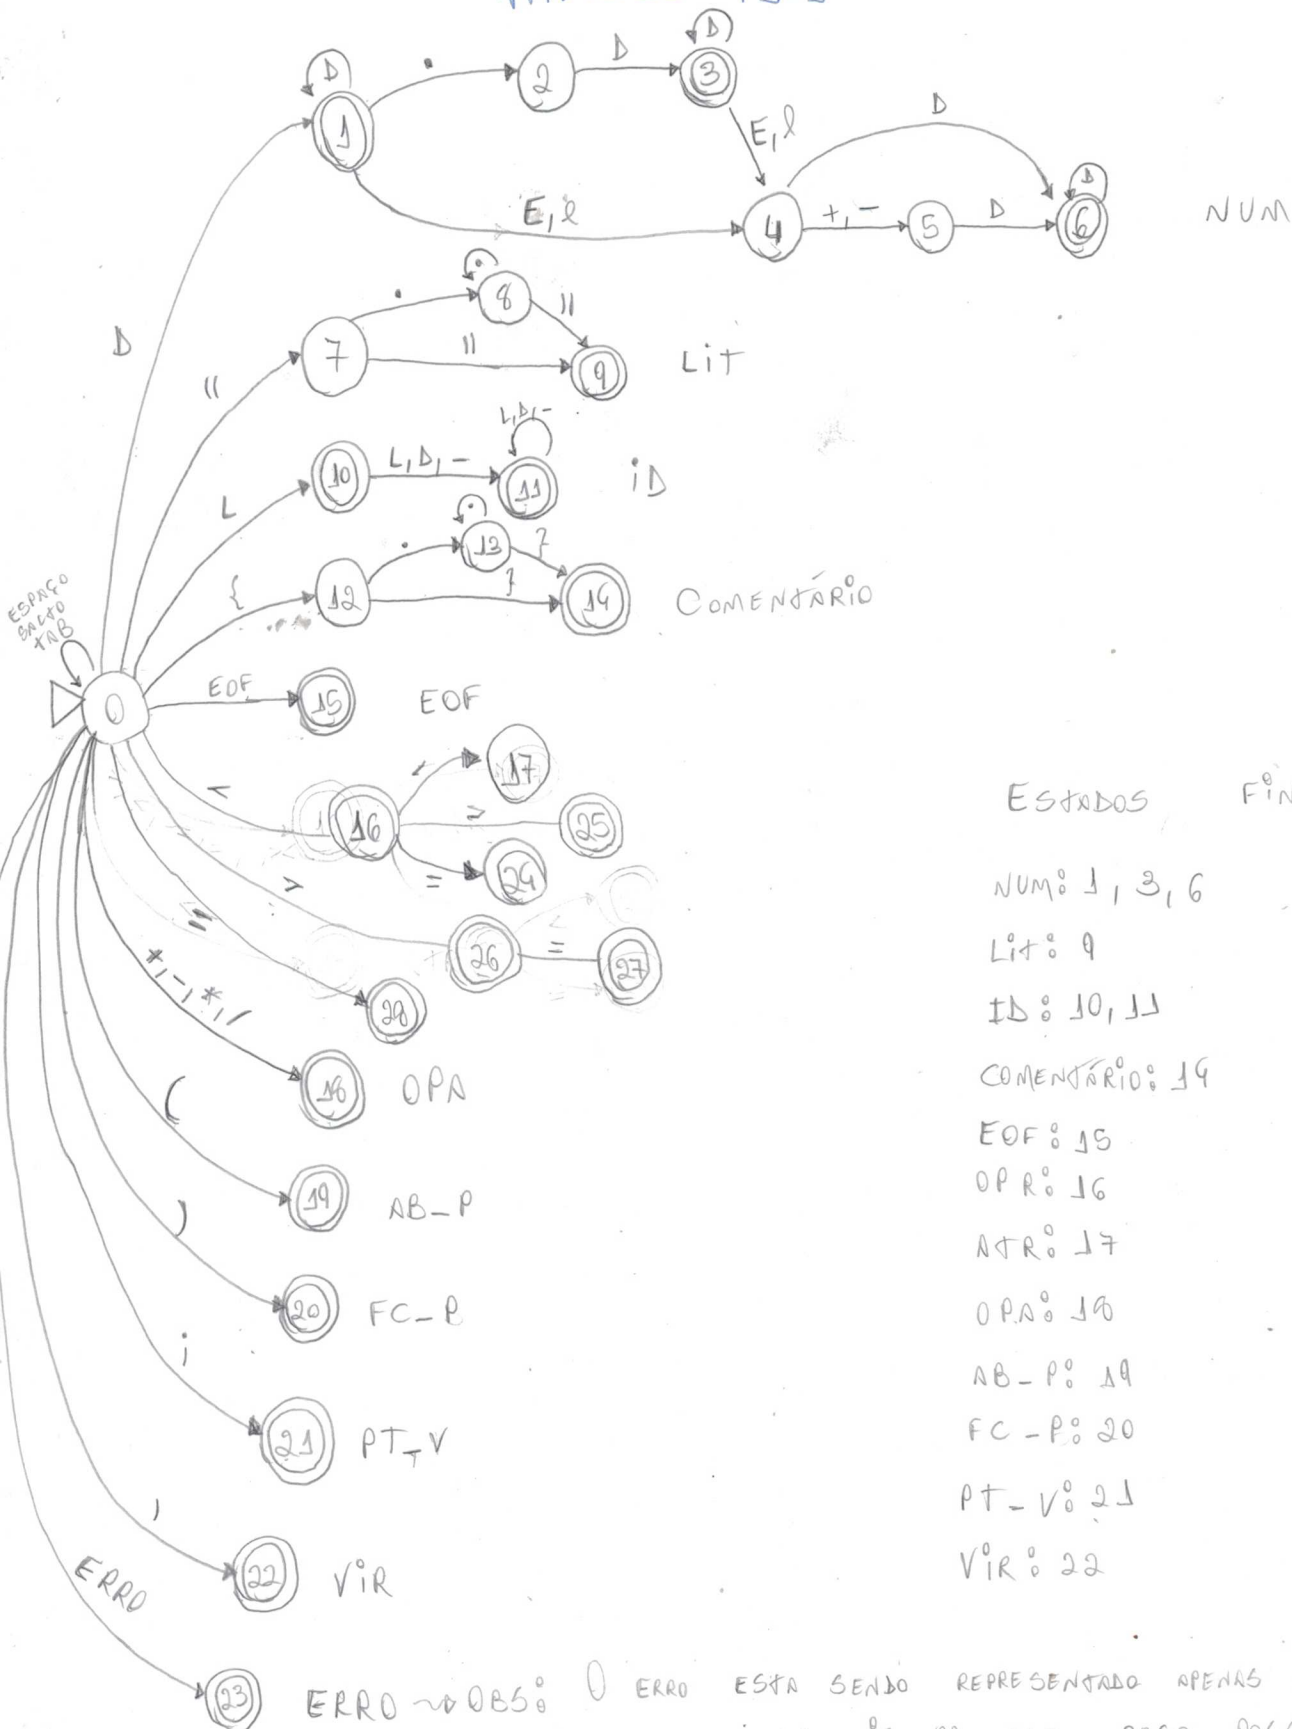 D
.
2
D
D
3
1
E, e
D
E, e
4
+, -
5
D
D
6
NUM
D
"
7
.
.
8
"
"
9
Lit
L
10
L, D, -
L, D, -
11
iD
{
12
.
.
13
}
}
14
COMENTÁRIO
ESPAÇO
SALTO
TAB
0
EOF
15
EOF
<
16
-
17
>
25
=
24
>
26
=
27
=
28
+, -, *, /
18
OPA
(
19
AB_P
)
20
FC_P
;
21
PT_V
,
22
ViR
ERRO
23
ERRO ~> OBS: O ERRO ESTA SENDO REPRESENTADO APENAS
ESTADOS FIN
NUM: 1, 3, 6
Lit: 9
ID: 10, 11
COMENTÁRIO: 14
EOF: 15
OPR: 16
ATR: 17
OPA: 18
AB_P: 19
FC_P: 20
PT_V: 21
ViR: 22